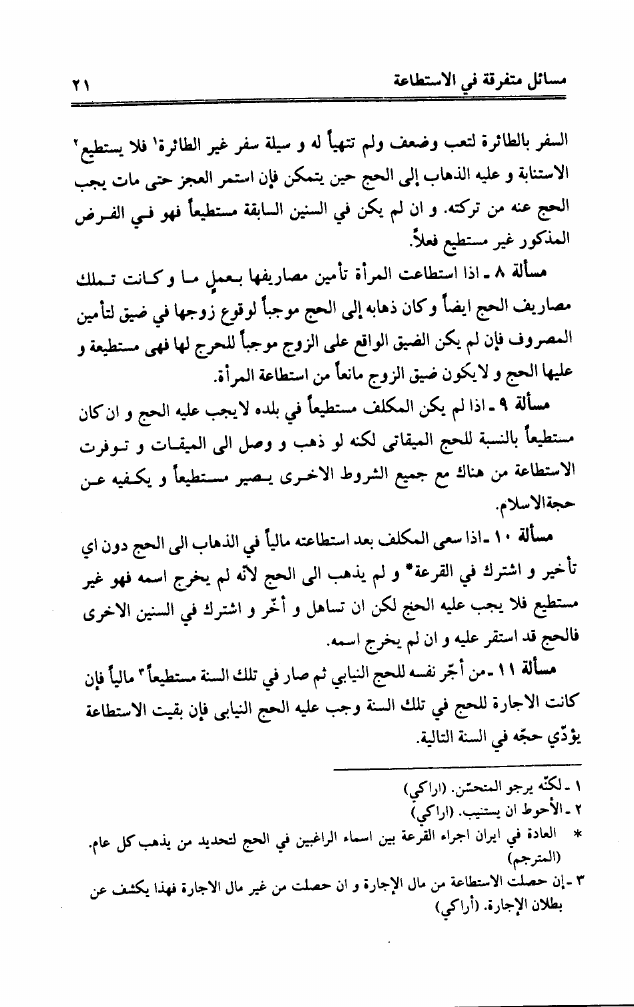 مسائل متفرقة في الاستطاعة ٢١
السفر بالطائرة لتعب وضعف ولم تتهيأ له و سيلة سفر غير الطائرة١ فلا يستطيع٢
الاستنابة و عليه الذهاب إلى الحج حين يتمكن فإن استمر العجز حتى مات يجب
الحج عنه من تركته. و ان لم يكن في السنين السابقة مستطيعاً فهو في الفرض
المذكور غير مستطيع فعلاً.
مسألة ٨ ـ اذا استطاعت المرأة تأمين مصاريفها بعملٍ ما و كانت تملك
مصاريف الحج ايضاً و كان ذهابه إلى الحج موجباً لوقوع زوجها في ضيق لتأمين
المصروف فإن لم يكن الضيق الواقع على الزوج موجباً للحرج لها فهى مستطيعة و
عليها الحج و لا يكون ضيق الزوج مانعاً من استطاعة المرأة.
مسألة ٩ ـ اذا لم يكن المكلف مستطيعاً في بلده لا يجب عليه الحج و ان كان
مستطيعاً بالنسبة للحج الميقاتى لكنه لو ذهب و وصل الى الميقات و توفرت
الاستطاعة من هناك مع جميع الشروط الاخرى يصير مستطيعاً و يكفيه عن
حجةالاسلام.
مسألة ١٠ ـ اذا سعى المكلف بعد استطاعته مالياً في الذهاب الى الحج دون اي
تأخير و اشترك في القرعة* و لم يذهب الى الحج لأنّه لم يخرج اسمه فهو غير
مستطيع فلا يجب عليه الحج لكن ان تساهل و أخّر و اشترك في السنين الاخرى
فالحج قد استقر عليه و ان لم يخرج اسمه.
مسألة ١١ ـ من أجّر نفسه للحج النيابي ثم صار في تلك السنة مستطيعاً٣ مالياً فإن
كانت الاجارة للحج في تلك السنة وجب عليه الحج النيابى فإن بقيت الاستطاعة
يؤدّي حجّه في السنة التالية.
١ ـ لكنّه يرجو المتحسّن. (اراكي)
٢ ـ الأحوط ان يستنيب. (اراكي)
* العادة في ايران اجراء القرعة بين اسماء الراغبين في الحج لتحديد من يذهب كل عام.
(المترجم)
٣ ـ إن حصلت الاستطاعة من مال الإجارة و ان حصلت من غير مال الاجارة فهذا يكشف عن
بطلان الإجارة. (أراكي)